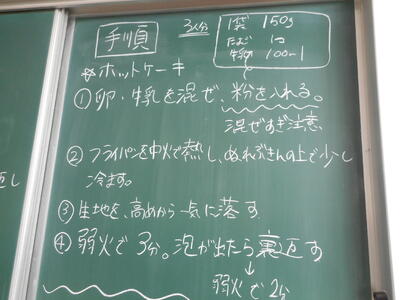 手順
3人分
1袋 150g
たまご 1コ
牛乳 100ml
☆ホットケーキ
①卵・牛乳を混ぜ、粉を入れる。
混ぜすぎ注意
②フライパンを中火で熱し、ぬれぶきんの上で少し
冷ます。
③生地を、高めから一気に落す
④弱火で3分。泡が出たら裏返す
↓
弱火で2分
返し